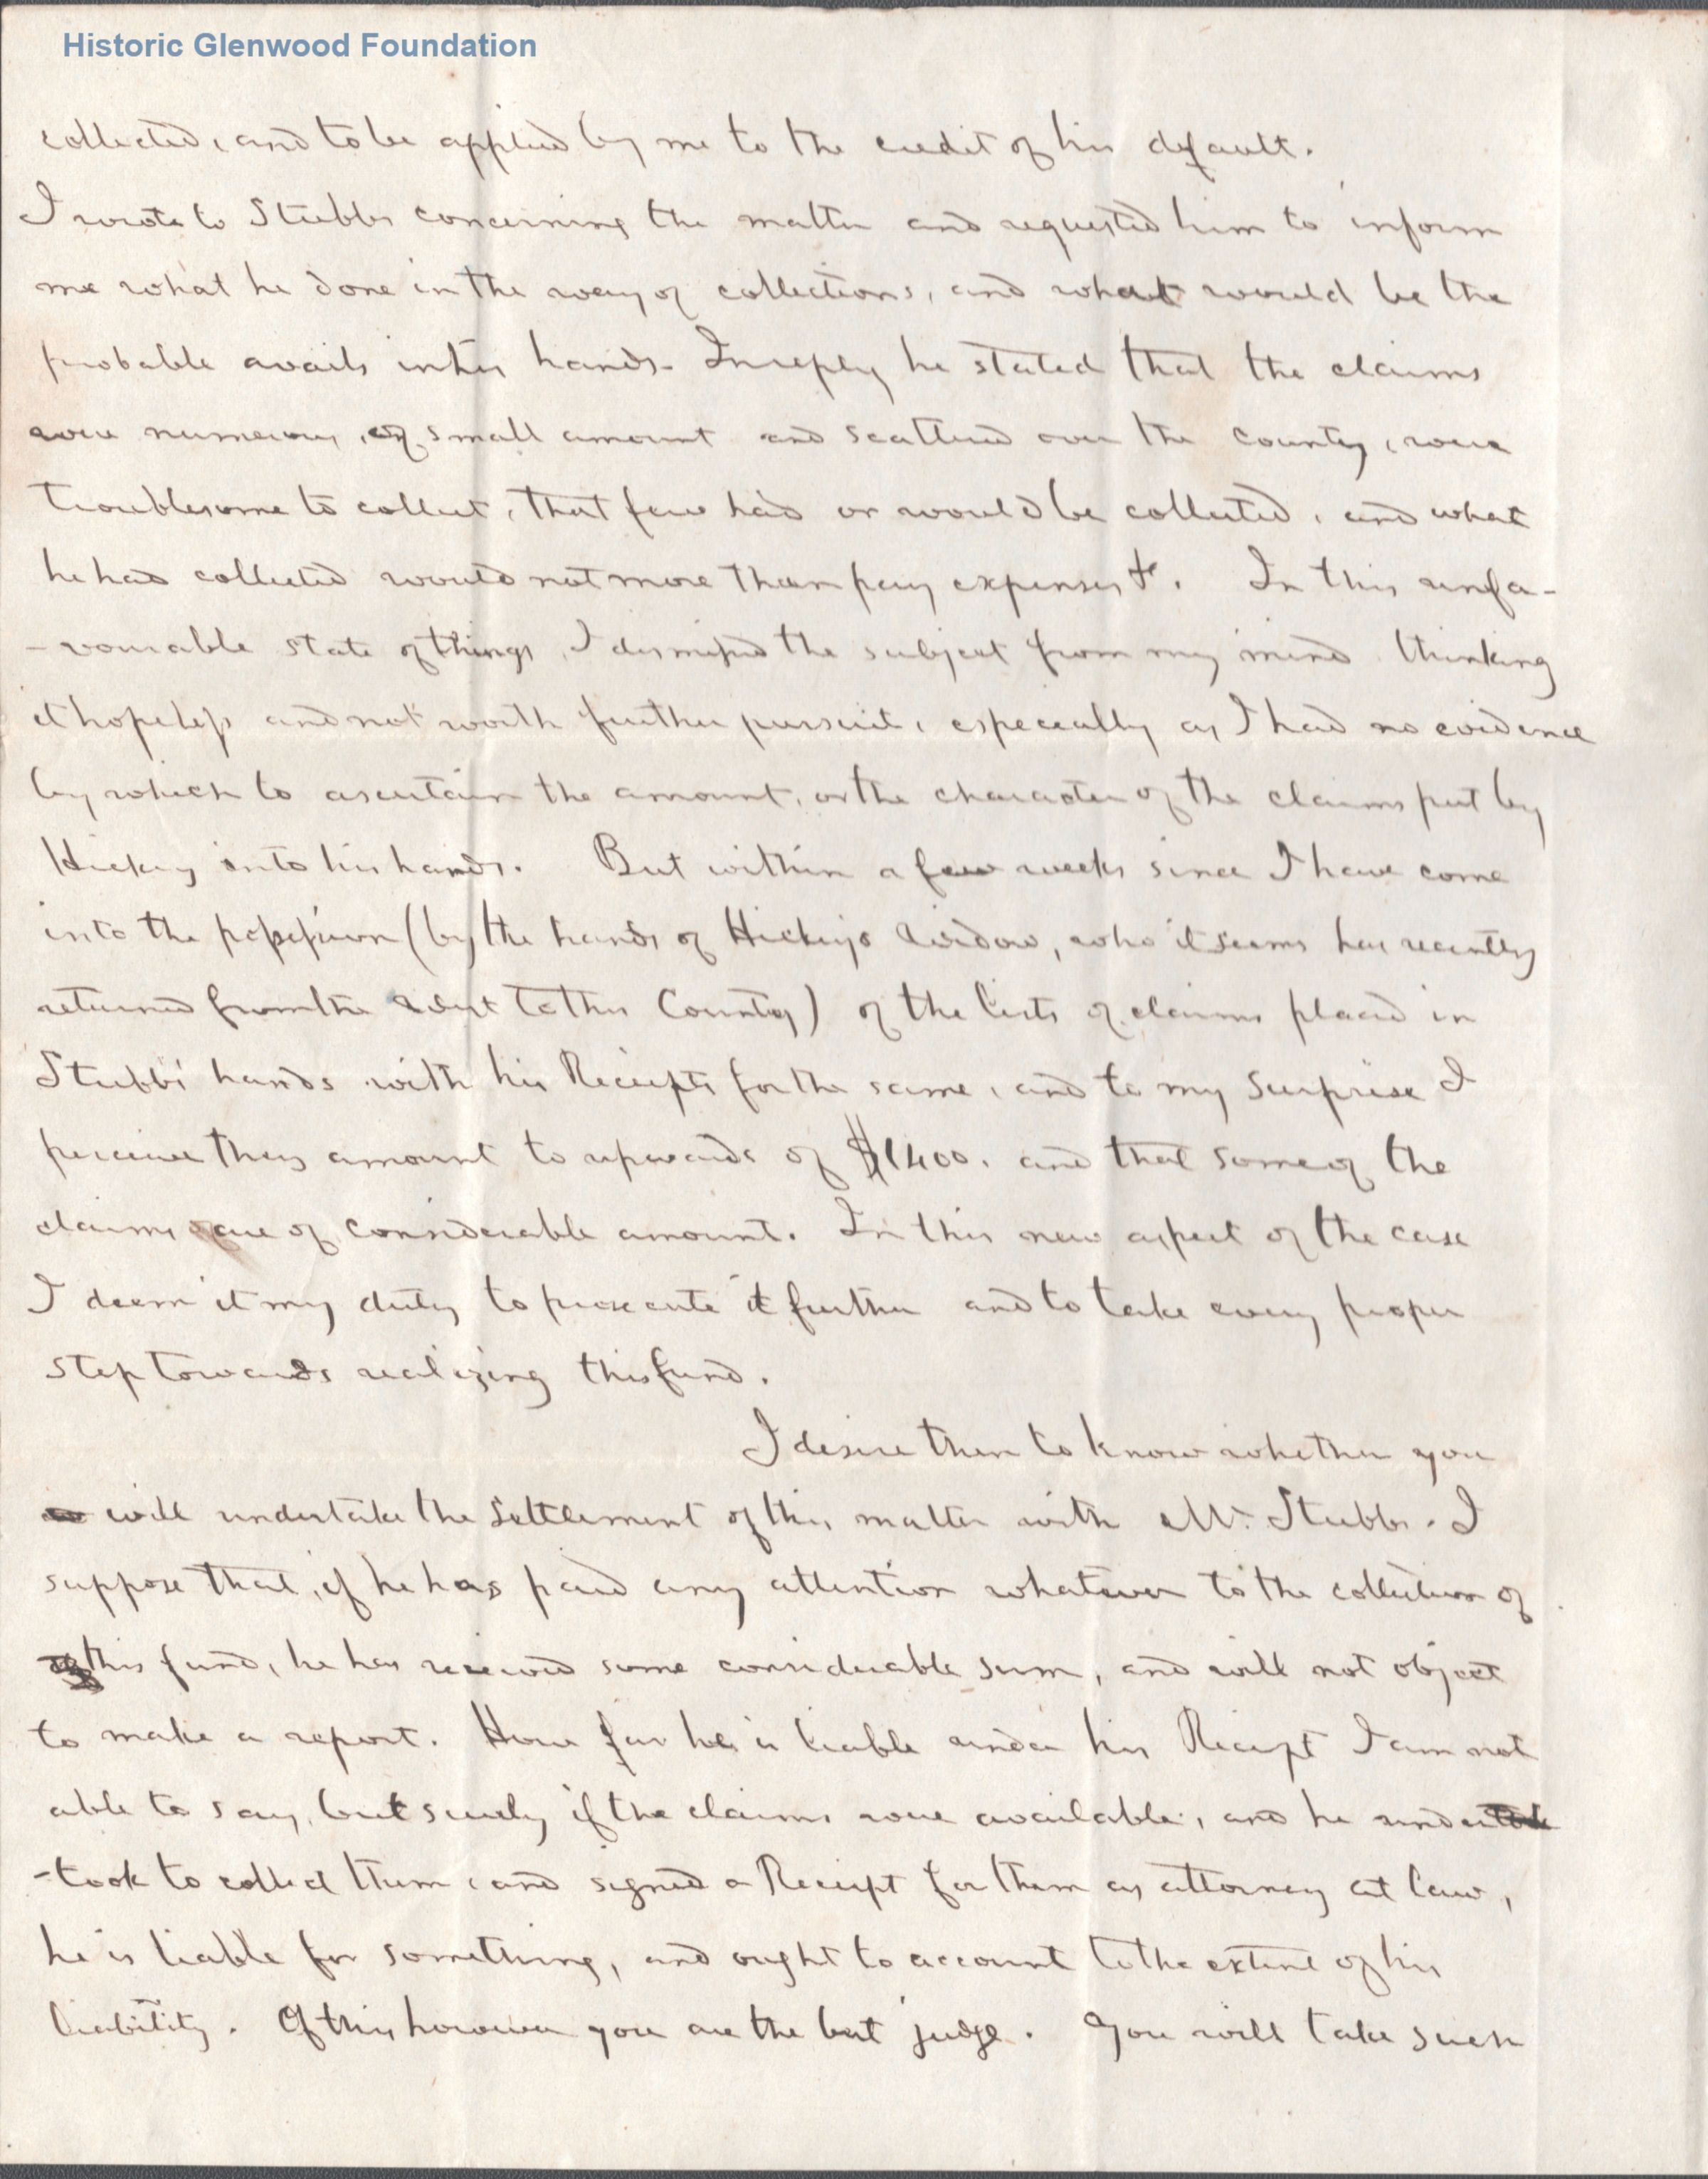 Historic Glenwood Foundation
collected, and to be applied by me to the credit of his default.
I wrote to Stubbs concerning the matter and requested him to inform
me what he done in the way of collections, and what would be the
probable avails in his hands. In reply he stated that the claims
were numerous, of small amount and scattered over the county, were
troublesome to collect, that few had or would be collected, and what
he had collected would not more than pay expenses &c. In this unfa-
-vourable state of things, I dismissed the subject from my mind thinking
it hopeless and not worth further pursuit, especially as I had no evidence
by which to ascertain the amount, or the character of the claims put by
Hickey into his hands. But within a few weeks since I have come
into the possession (by the hands of Hickey's Widow, who it seems has recently
returned from the West to this County) of the lists of claims placed in
Stubbs' hands with his Receipts for the same, and to my surprise I
perceive they amount to upwards of $1400. and that some of the
claims are of considerable amount. In this new aspect of the case
I deem it my duty to prosecute it further and to take every proper
step towards realizing this fund.
I desire then to know whether you
will undertake the settlement of this matter with Mr. Stubbs. I
suppose that, if he has paid any attention whatever to the collection of
this fund, he has received some considerable sum, and will not object
to make a report. How far he is liable under his Receipt I am not
able to say, but surely if the claims were available, and he under
-took to collect them, and signed a Receipt for them as attorney at law,
he is liable for something, and ought to account to the extent of his
liability. Of this however you are the best judge. You will take such